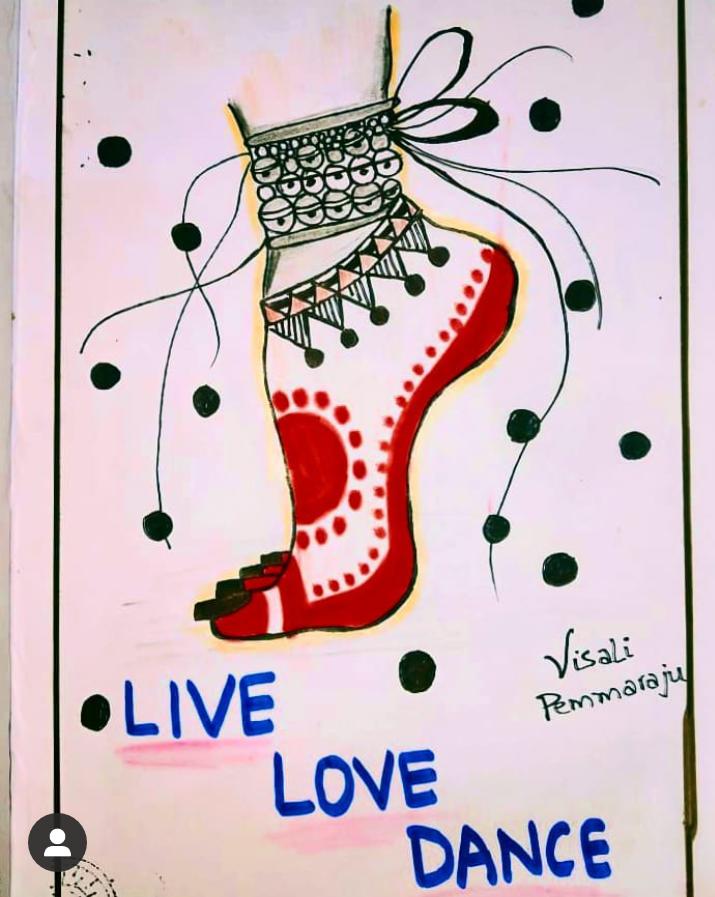 Visali
Pemmaraju
LIVE
LOVE
DANCE